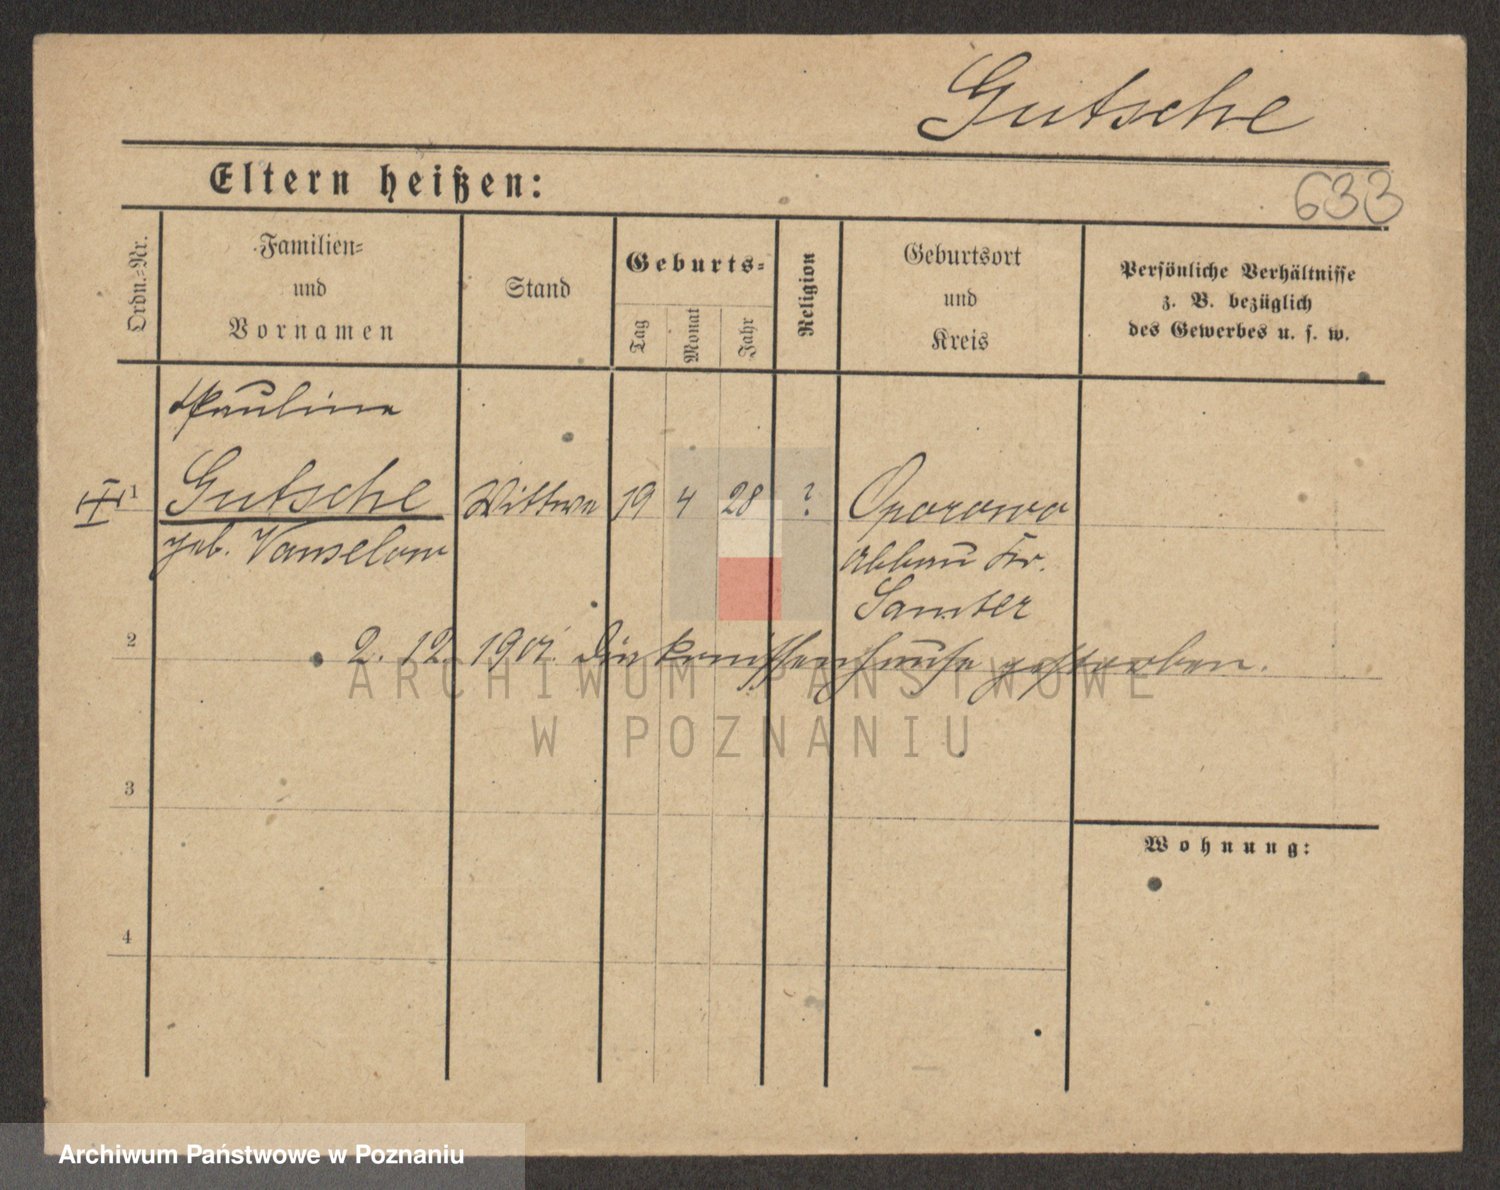 Gutsche
Eltern heißen:
633
Ordn.-Nr.
Familien-
und
Vornamen
Stand
Geburts-
Tag
Monat
Jahr
Religion
Geburtsort
und
Kreis
Persönliche Verhältnisse
z. B. bezüglich
des Gewerbes u. s. w.
Pauline
1 Gutsche Wittwe 19 4 28 ? Oporowo
geb. Vanselow Abbau Kr.
Samter
2 2. 12. 1901. Diakonissenhause gestorben.
ARCHIWUM PAŃSTWOWE
W POZNANIU
3
Wohnung:
4
Archiwum Państwowe w Poznaniu